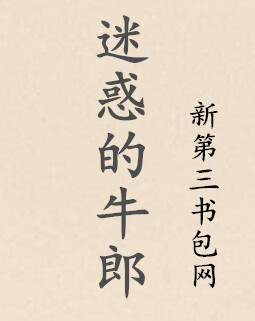 迷惑的牛郎
新第三书包网